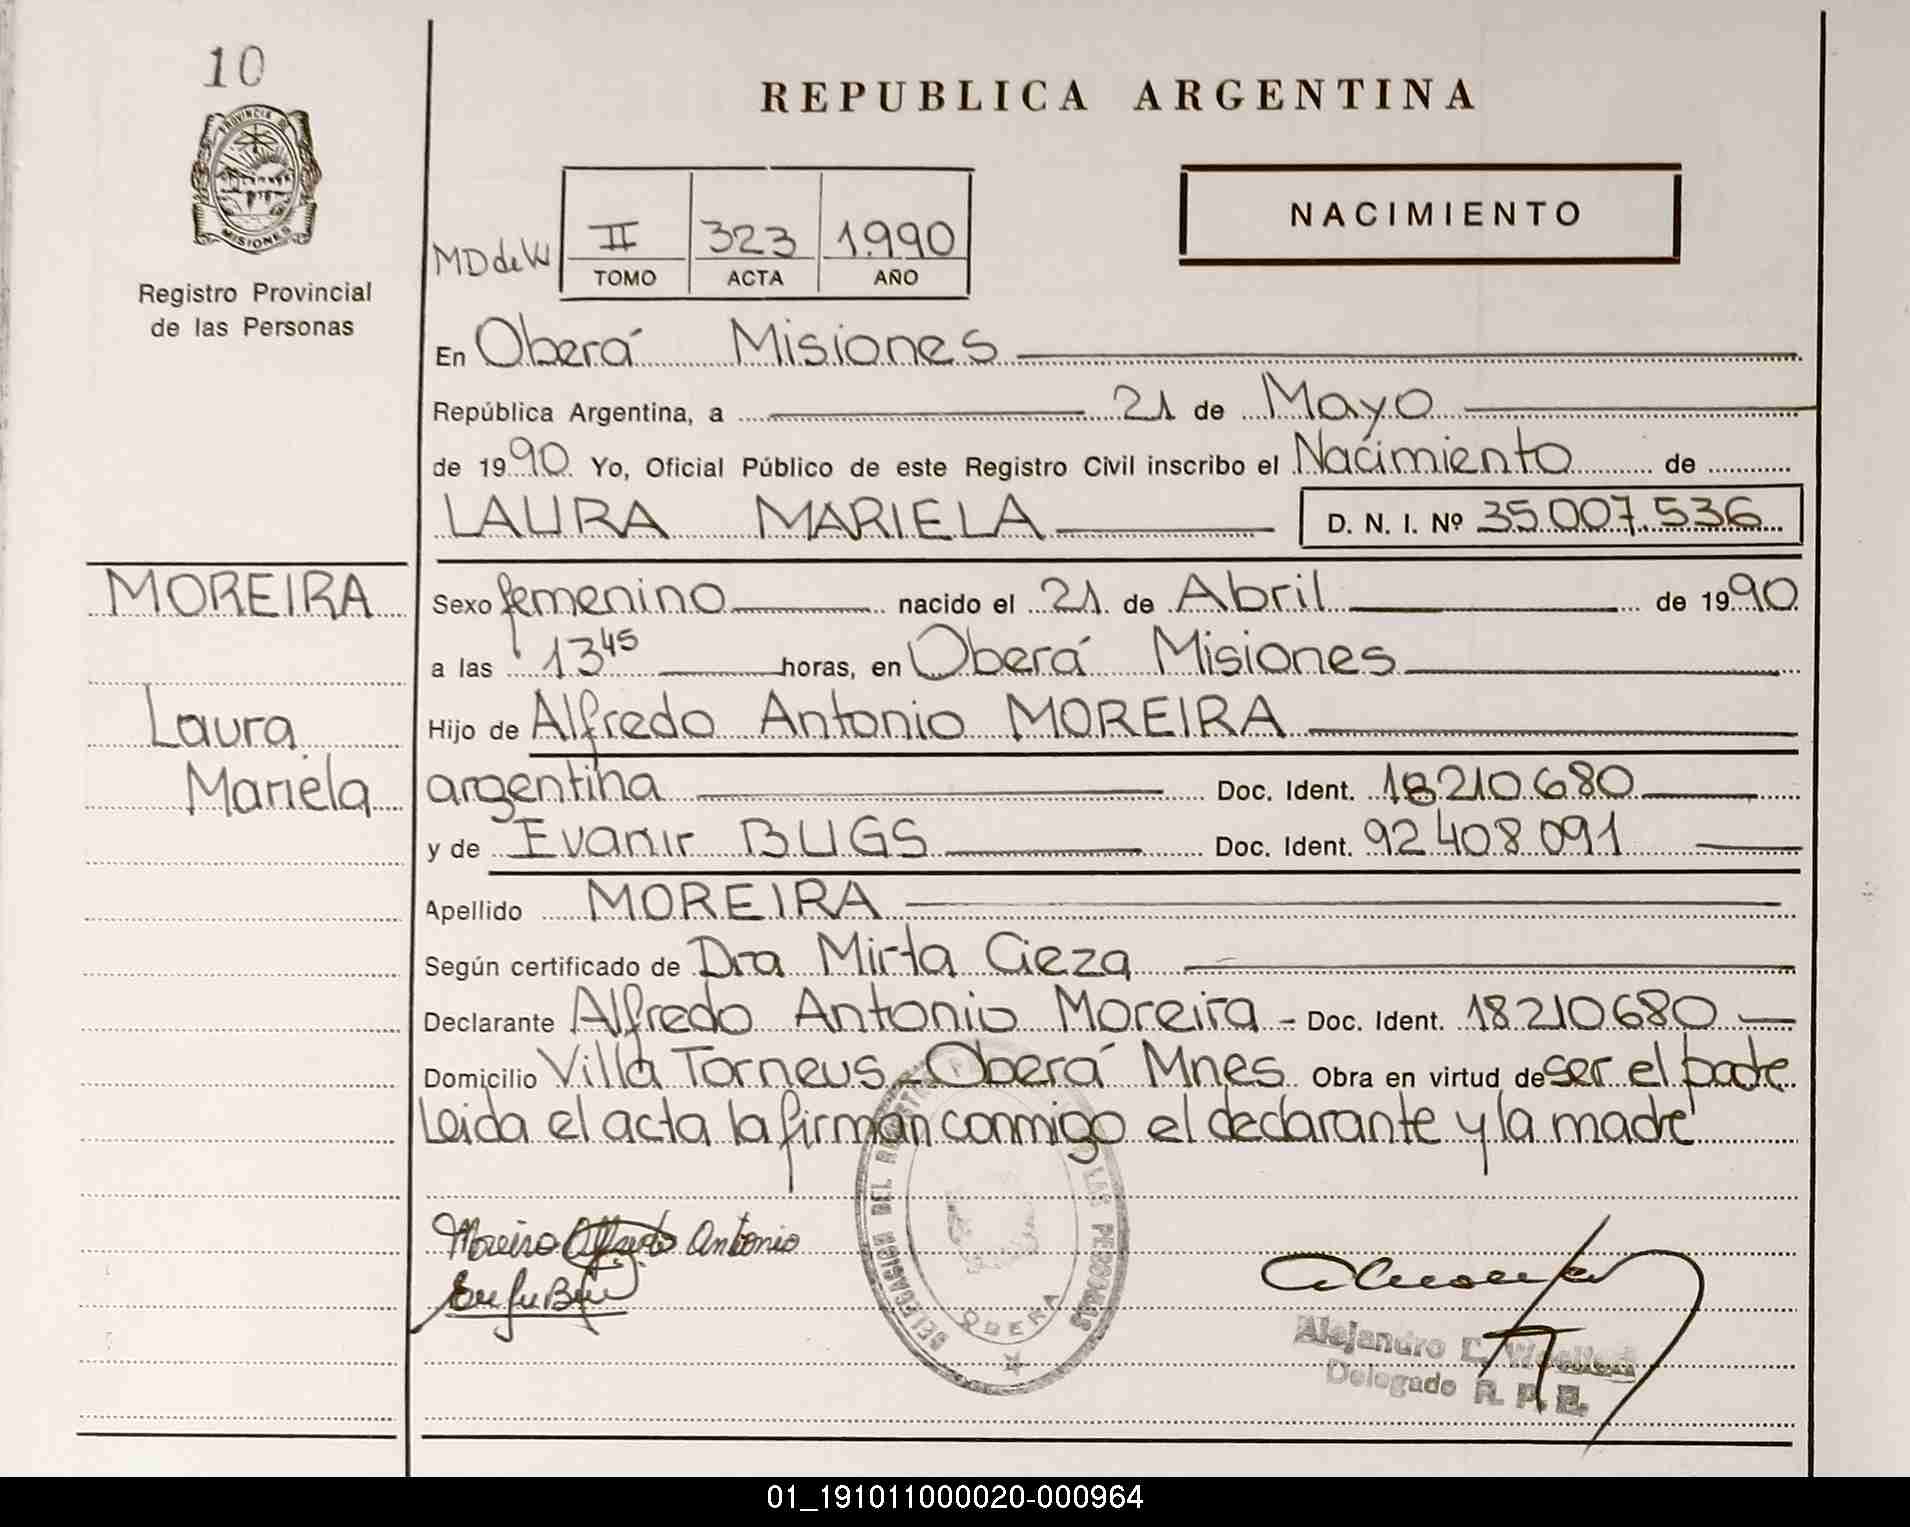 10
PROVINCIA DE
MISIONES
Registro Provincial
de las Personas
REPUBLICA ARGENTINA
NACIMIENTO
MD de W
II 323 1.990
TOMO ACTA AÑO
En Oberá Misiones
República Argentina, a 21 de Mayo
de 1990 Yo, Oficial Público de este Registro Civil inscribo el Nacimiento de
LAURA MARIELA D. N. I. Nº 35.007.536
MOREIRA
Laura
Mariela
Sexo femenino nacido el 21 de Abril de 1990
a las 13 45 horas, en Oberá Misiones
Hijo de Alfredo Antonio MOREIRA
argentina Doc. Ident. 18210680
y de Evanir BUGS Doc. Ident. 92408091
Apellido MOREIRA
Según certificado de Dra Mirta Cieza
Declarante Alfredo Antonio Moreira - Doc. Ident. 18210680
Domicilio Villa Torneus - Oberá Mnes Obra en virtud de ser el padre
Leida el acta la firman conmigo el declarante y la madre
Moreira Alfredo Antonio
DELEGACION DEL REGISTRO LAS PERSONAS
OBERA
Alejandro
Delegado R. P.
01_191011000020-000964